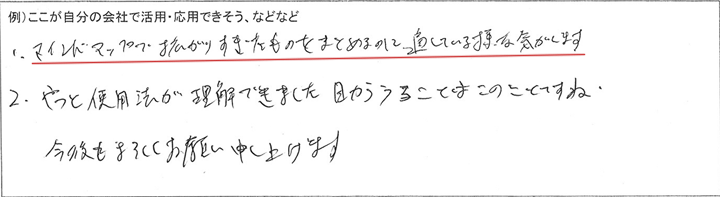 例）ここが自分の会社で活用・応用できそう、などなど
1. マインドマップで拡がりすぎたものをまとめるのに適している様な気がします
2. やっと使用法が理解できました 目からうろことはこのことですね.
今後もよろしくお願い申し上げます